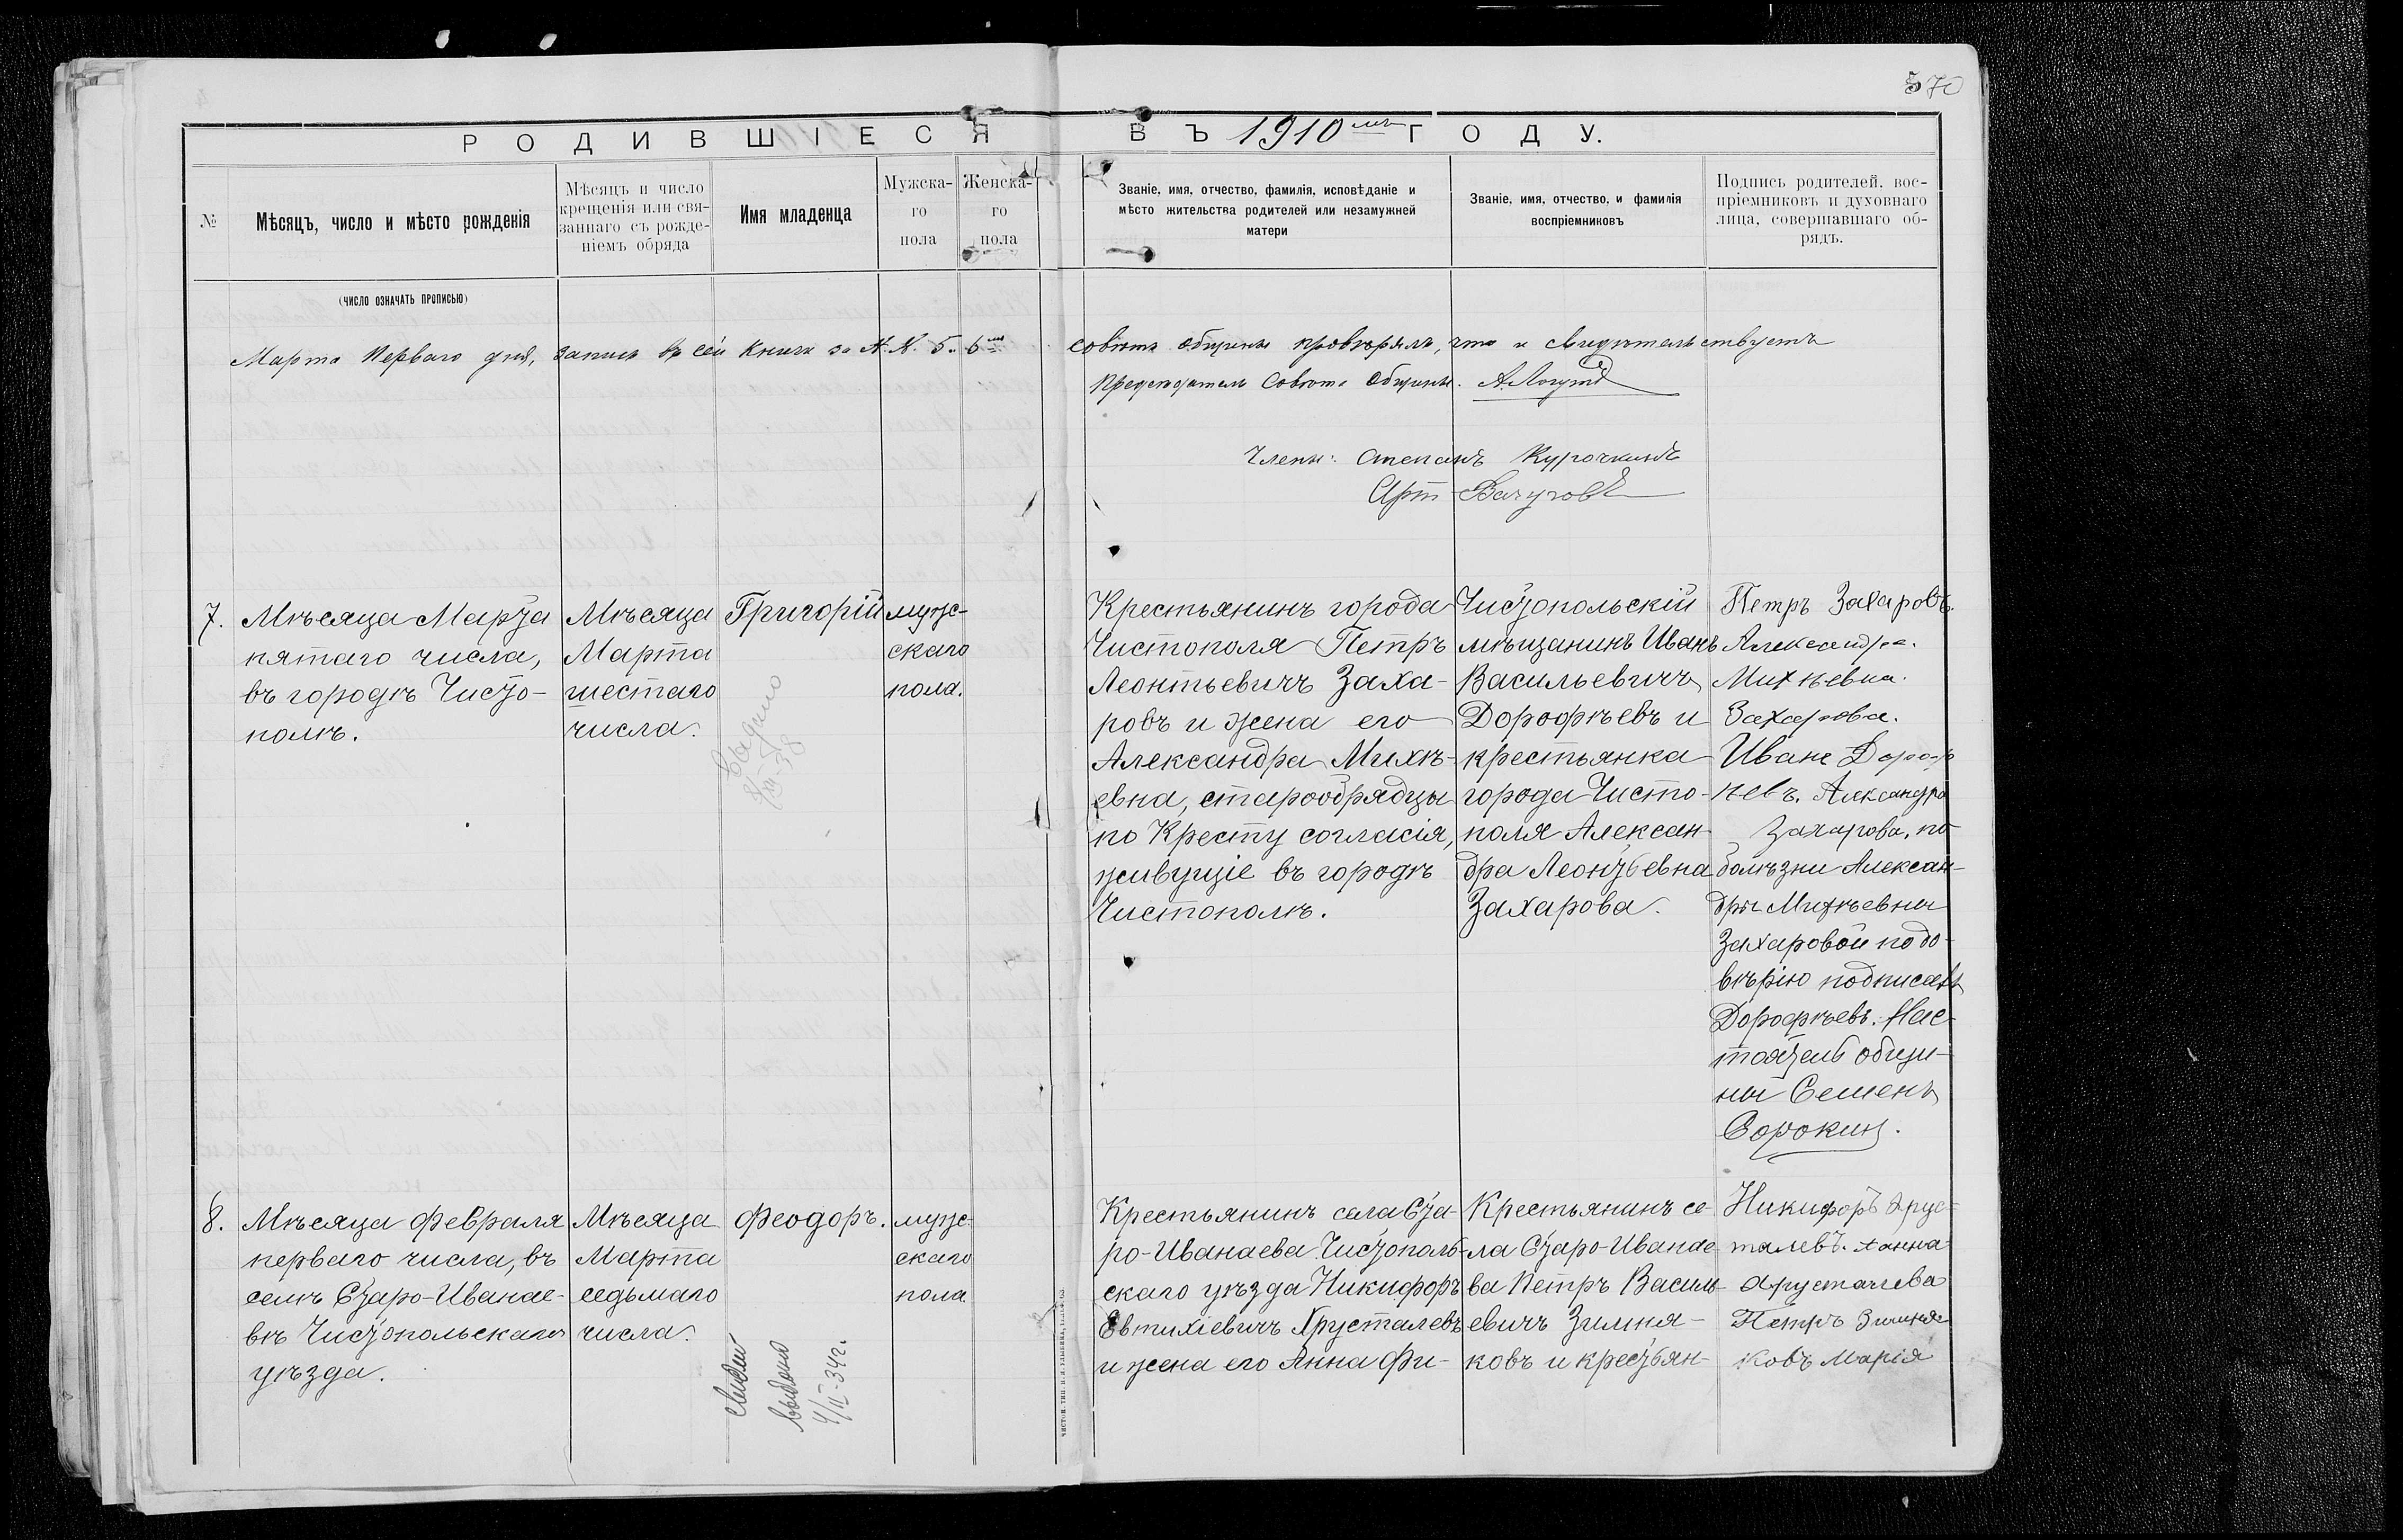 570
РОДИВШІЕСЯ ВЪ 1910мъ ГОДУ.
№
Мѣсяцъ, число и мѣсто рожденія
Мѣсяцъ и число
крещенія или свя-
заннаго съ рожде-
ніемъ обряда
Имя младенца
Мужска-
го
пола
Женска-
го
пола
Званіе, имя, отчество, фамилія, исповѣданіе и
мѣсто жительства родителей или незамужней
матери
Званіе, имя, отчество, и фамилія
воспріемниковъ
Подпись родителей, вос-
пріемниковъ и духовнаго
лица, совершавшаго об-
рядъ.
(число означать прописью)
Марта перваго дня, запись въ сей книги за №.№. 5. 6ой совѣтъ общины провѣрялъ, что и свидѣтельствуетъ
Председатель Совѣта Общины. А. Логутов
Члены: Степанъ Курочкинъ
Арт Вачуговъ
7.
Мѣсяца Марта
пятаго числа,
въ городѣ Чисто-
полѣ.
Мѣсяца
Марта
шестаго
числа.
Григорій
Выдано
муж-
скаго
пола.
Крестьянинъ города
Чистополя Петръ
Леонтьевичъ Заха-
ровъ и жена его
Александра Михѣ-
евна, старообрядцы
по Кресту согласія,
живущіе въ городѣ
Чистополѣ.
Чистопольскій
мѣщанинъ Иванъ
Васильевичъ
Дорофѣевъ и
крестьянка
города Чисто-
поля Алексан-
дра Леонтьевна
Захарова.
Петръ Захаровъ.
Александра
Михѣевна.
Захарова.
Иванъ Дороф
ѣевъ. Александра
Захарова, по
болѣзни Алексан-
дры Михѣевны
Захаровой по до-
вѣрію подписалъ
Дорофѣевъ. Нас-
тоятель общи-
ны Семенъ
Сорокинъ.
8.
Мѣсяца Февраля
перваго числа, въ
селѣ Старо-Иванае-
вѣ Чистопольскаго
уѣзда.
Мѣсяца
Марта
седьмаго
числа.
Феодоръ.
выдано
4/II-34г.
муж-
скаго
пола
Крестьянинъ села Ста-
ро-Иванаева Чистополь-
скаго уѣзда Никифоръ
Евтихіевичъ Хрусталевъ
и жена его Анна Фи-
Крестьянинъ се-
ла Старо-Иванае-
ва Петръ Василь-
евичъ Зимня-
ковъ и крестьян-
Никифоръ Хрус-
талевъ. Анна
Хрусталева
Петръ Зимня
ковъ Марія